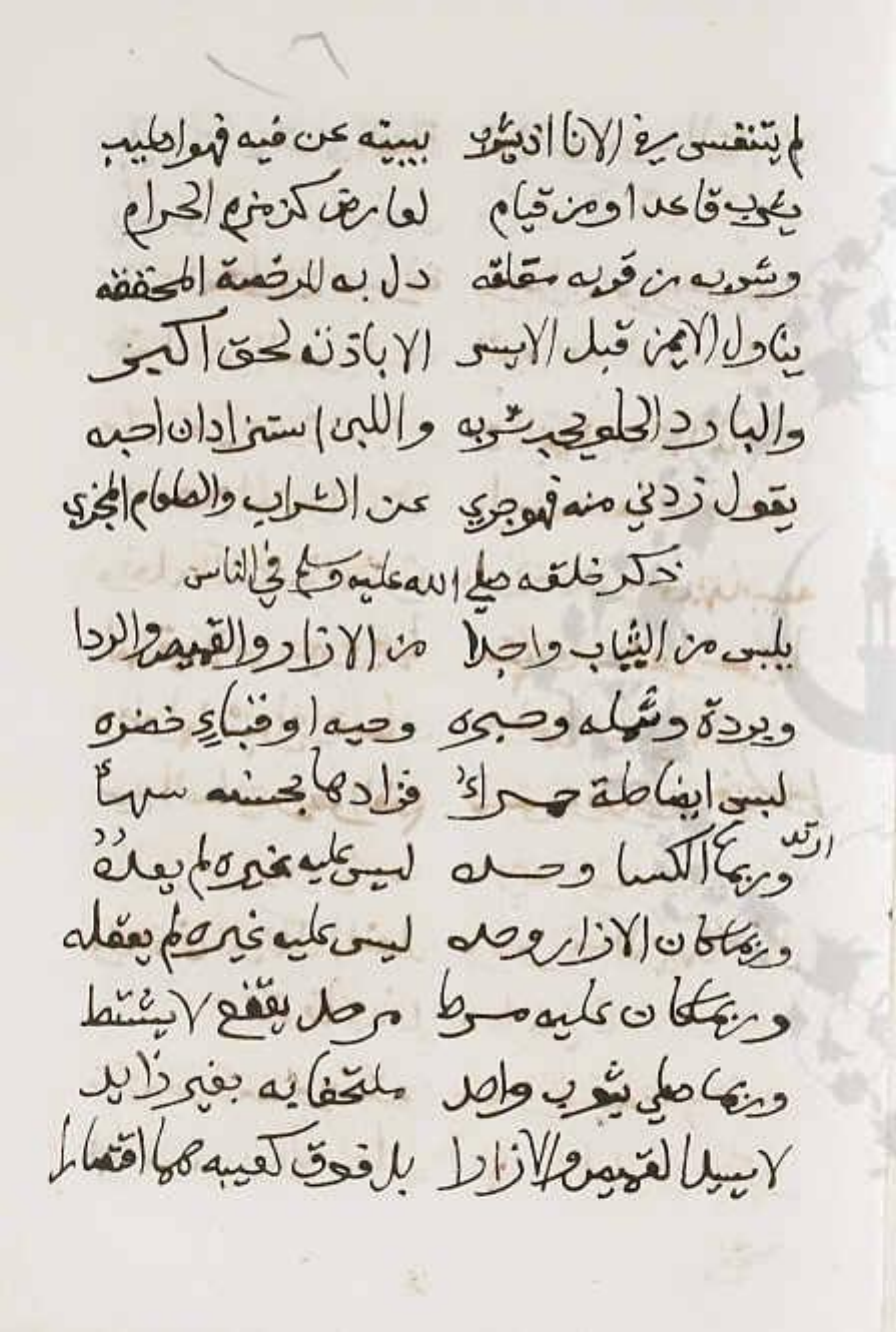 لم يتنفس في الانا اذ يشرب يبينه عن فيه فهو اطيب
يشرب قاعدا ومن قيام لعارض كزمزم الحرام
وشربه من قربه معلقه دل به للرخصة المحققه
يناول الايمن قبل الايسر الا باذنه لحق اكبر
والبارد الحلو يحب شربه واللبن استزادان احبه
يقول زدني منه فهو جري عن الشراب والطعام المجزي
ذكر خلقه صلي الله عليه وسلم في الناس
يلبس من الثياب واجدا من الازار والقميص والردا
وبردة وشمله وحبره وجبه او قباء خضره
لبس ايضا حلة حمراء فزادها بحسنه سناء
وربما ارتد الكسا وحده ليس عليه غيره لم يعده
وربما كان الازار وحده ليس عليه غيره لم يعقله
وربما كان عليه مرط مرحل يقنع لا يشتط
وربما صلي بثوب واحد ملتحفا به بغير زايد
لا يسبل القميص والازارا بل فوق كعبيه هما اقتصارا